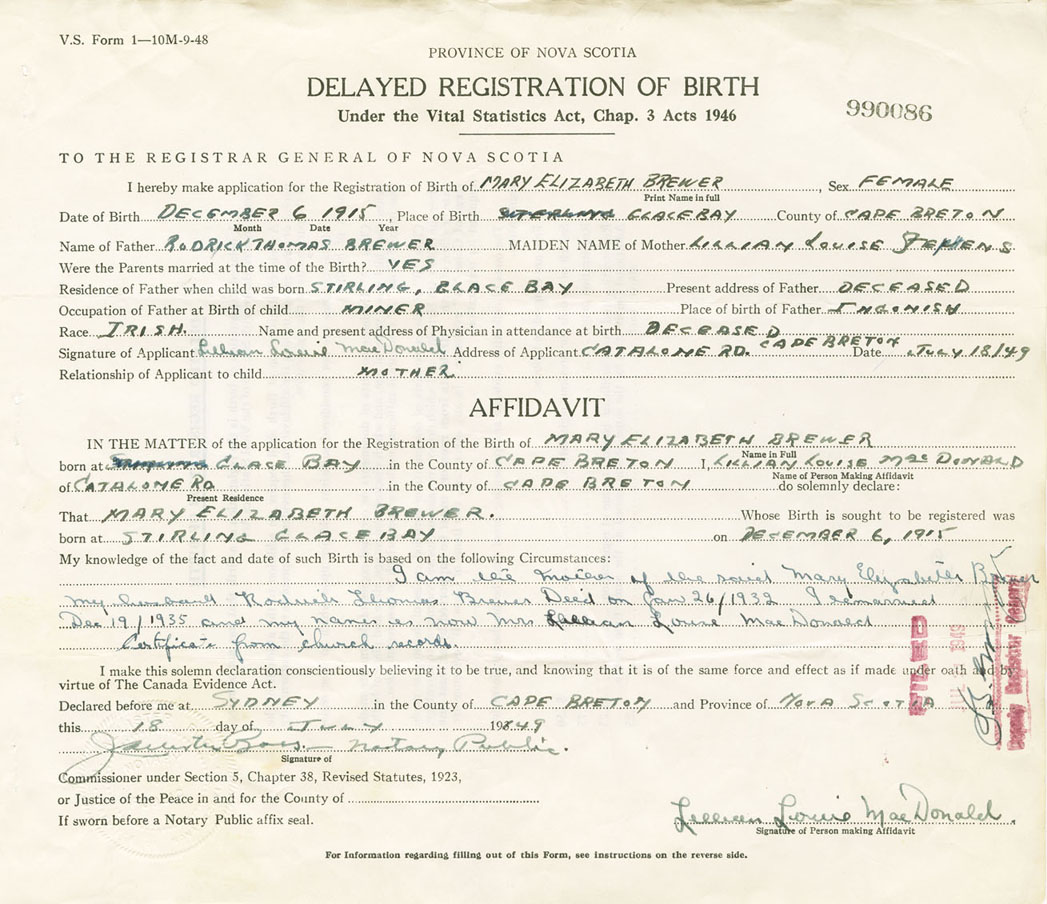 V.S. Form 1—10M-9-48
PROVINCE OF NOVA SCOTIA
DELAYED REGISTRATION OF BIRTH
Under the Vital Statistics Act, Chap. 3 Acts 1946
990086
TO THE REGISTRAR GENERAL OF NOVA SCOTIA
I hereby make application for the Registration of Birth of MARY ELIZABETH BREWER, Sex FEMALE
Print Name in full
Date of Birth DECEMBER 6 1915, Place of Birth GLACE BAY County of CAPE BRETON
Month Date Year
Name of Father RODRICK THOMAS BREWER MAIDEN NAME of Mother LILLIAN LOUISE STEPHENS
Were the Parents married at the time of the Birth? YES
Residence of Father when child was born STIRLING, GLACE BAY Present address of Father DECEASED
Occupation of Father at Birth of child MINER Place of birth of Father INGONISH
Race IRISH. Name and present address of Physician in attendance at birth DECEASED
Signature of Applicant Lillian Louise MacDonald Address of Applicant CATALONE RD. CAPE BRETON Date JULY 18/49
Relationship of Applicant to child MOTHER
AFFIDAVIT
IN THE MATTER of the application for the Registration of the Birth of MARY ELIZABETH BREWER
Name in Full
born at GLACE BAY in the County of CAPE BRETON I, LILLIAN LOUISE MACDONALD
Name of Person Making Affidavit
of CATALONE RD in the County of CAPE BRETON do solemnly declare:
Present Residence
That MARY ELIZABETH BREWER. Whose Birth is sought to be registered was
born at STIRLING GLACE BAY on DECEMBER 6, 1915
My knowledge of the fact and date of such Birth is based on the following Circumstances:
I am the mother of the said Mary Elizabeth Brewer
my husband Rodrick Thomas Brewer Died on Jan 26/1932 I remarried
Dec 19/1935 and my name is now Mrs Lillian Louise MacDonald
Certificate from church records.
I make this solemn declaration conscientiously believing it to be true, and knowing that it is of the same force and effect as if made under oath and by
virtue of The Canada Evidence Act.
Declared before me at SYDNEY in the County of CAPE BRETON and Province of NOVA SCOTIA
this 18 day of JULY 1949
Notary Public.
Signature of
Commissioner under Section 5, Chapter 38, Revised Statutes, 1923,
or Justice of the Peace in and for the County of
If sworn before a Notary Public affix seal.
Lillian Louise MacDonald.
Signature of Person making Affidavit
For Information regarding filling out of this Form, see instructions on the reverse side.
FILED
1949
Deputy Registrar General